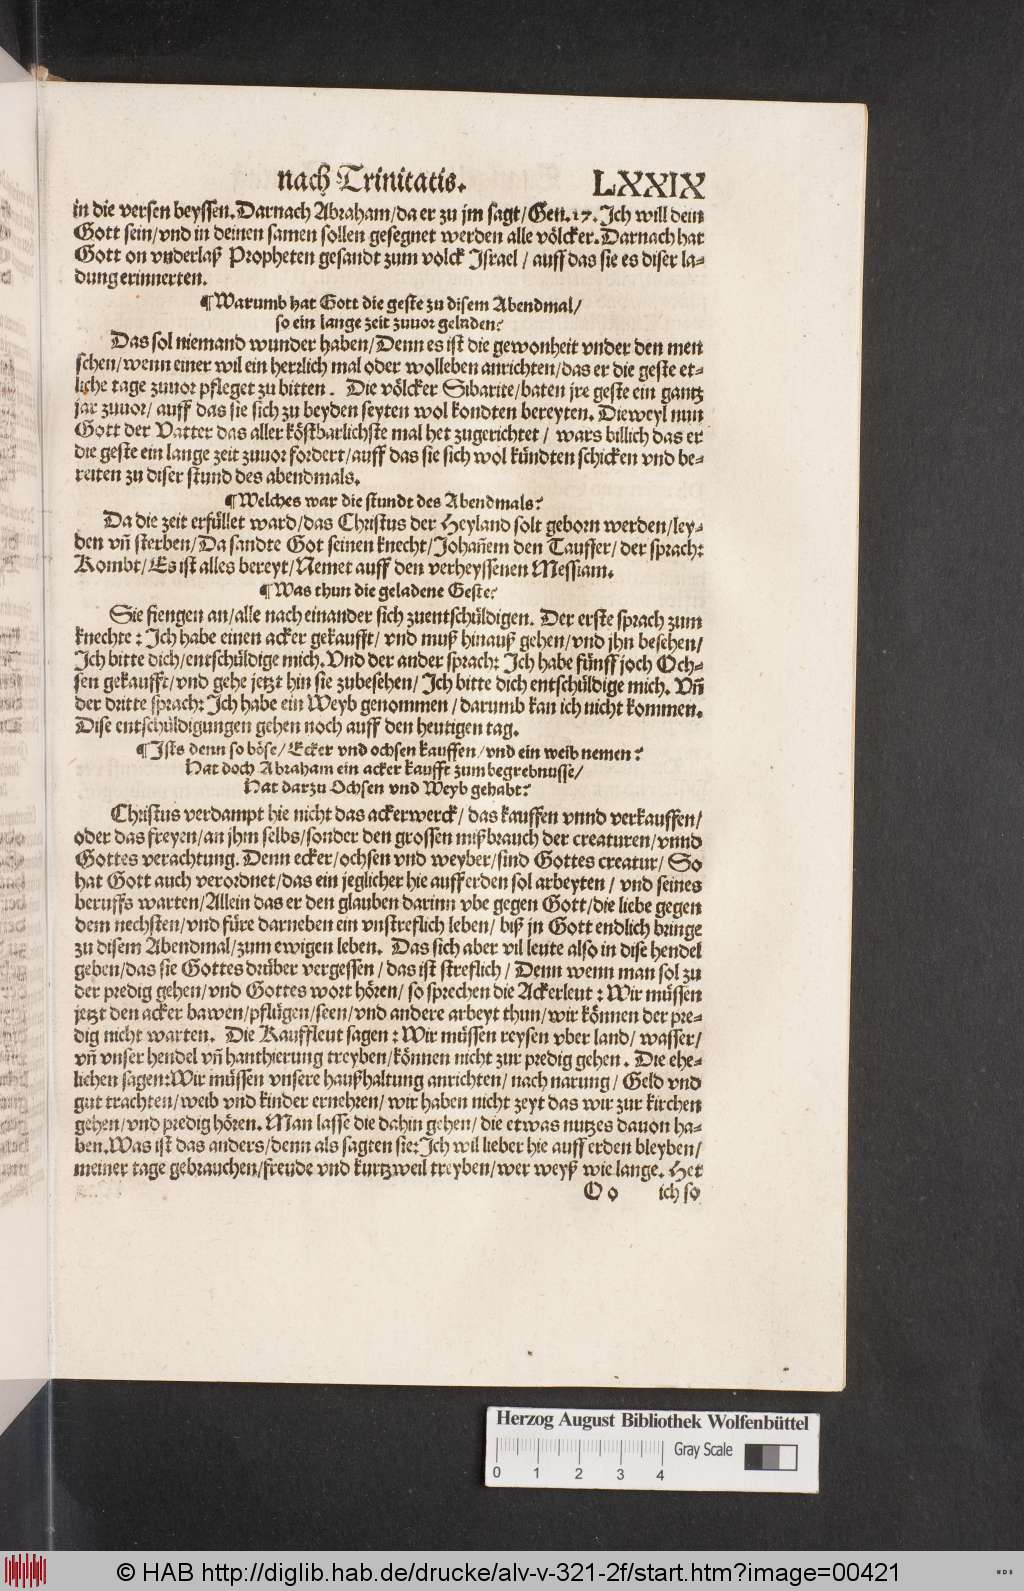 nach Trinitatis. LXXIX
in die versen beyssen. Darnach Abraham/da er zu jm sagt/Gen. 17. Ich will dein
Gott sein/vnd in deinen samen sollen gesegnet werden alle völcker. Darnach hat
Gott on vnderlaß Propheten gesandt zum volck Israel / auff das sie es diser la-
dung erinnerten.
¶ Warumb hat Gott die geste zu disem Abendmal/
so ein lange zeit zuuor geladen?
Das sol niemand wunder haben/Denn es ist die gewonheit vnder den men
schen/wenn einer wil ein herrlich mal oder wolleben anrichten/das er die geste et-
liche tage zuuor pfleget zu bitten. Die völcker Sibarite/baten jre geste ein gantz
jar zuuor/ auff das sie sich zu beyden seyten wol kondten bereyten. Dieweyl nun
Gott der Vatter das aller köstbarlichste mal het zugerichtet / wars billich das er
die geste ein lange zeit zuuor fordert/auff das sie sich wol kündten schicken vnd be-
reiten zu diser stund des abendmals.
¶ Welches war die stundt des Abendmals?
Da die zeit erfüllet ward/das Christus der Heyland solt geborn werden/ley-
den vñ sterben/Da sandte Got seinen knecht/Johañem den Tauffer/der sprach:
Kombt/Es ist alles bereyt/Nemet auff den verheyssenen Messiam.
¶ Was thun die geladene Geste?
Sie fiengen an/alle nach einander sich zuentschüldigen. Der erste sprach zum
knechte: Ich habe einen acker gekaufft/ vnd muß hinauß gehen/vnd jhn besehen/
Ich bitte dich/entschüldige mich. Vnd der ander sprach: Ich habe fünff joch Och-
sen gekaufft/vnd gehe jetzt hin sie zubesehen/Ich bitte dich entschüldige mich. Vñ
der dritte sprach: Ich habe ein Weyb genommen/darumb kan ich nicht kommen.
Dise entschüldigungen gehen noch auff den heutigen tag.
¶ Ists denn so böse/Ecker vnd ochsen kauffen/vnd ein weib nemen?
Hat doch Abraham ein acker kaufft zum begrebnusse/
Hat darzu Ochsen vnd Weyb gehabt?
Christus verdampt hie nicht das ackerwerck/ das kauffen vnnd verkauffen/
oder das freyen/an jhm selbs/sonder den grossen mißbrauch der creaturen/vnnd
Gottes verachtung. Denn ecker/ochsen vnd weyber/sind Gottes creatur/ So
hat Gott auch verordnet/das ein jeglicher hie auff erden sol arbeyten / vnd seines
beruffs warten/Allein das er den glauben darinn vbe gegen Gott/die liebe gegen
dem nechsten/vnd füre darneben ein vnstreflich leben/ biß jn Gott endlich bringe
zu disem Abendmal/zum ewigen leben. Das sich aber vil leute also in dise hendel
geben/das sie Gottes drüber vergessen / das ist streflich / Denn wenn man sol zu
der predig gehen/vnd Gottes wort hören/ so sprechen die Ackerleut: Wir müssen
jetzt den acker bawen/pflügen/seen/vnd andere arbeyt thun/wir können der pre-
dig nicht warten. Die Kauffleut sagen: Wir müssen reysen vber land/ wasser/
vñ vnser hendel vñ hanthierung treyben/können nicht zur predig gehen. Die ehe-
lichen sagen: Wir müssen vnsere haußhaltung anrichten/ nach narung/ Geld vnd
gut trachten/weib vnd kinder ernehren/ wir haben nicht zeyt das wir zur kirchen
gehen/vnd predig hören. Man lasse die dahin gehen/ die etwas nutzes dauon ha-
ben. Was ist das anders/denn als sagten sie: Ich wil lieber hie auff erden bleyben/
meiner tage gebrauchen/freude vnd kurtzweil treyben/wer weyß wie lange. Het
O o ich so
Herzog August Bibliothek Wolfenbüttel
0 1 2 3 4 Gray Scale
© HAB http://diglib.hab.de/drucke/alv-v-321-2f/start.htm?image=00421